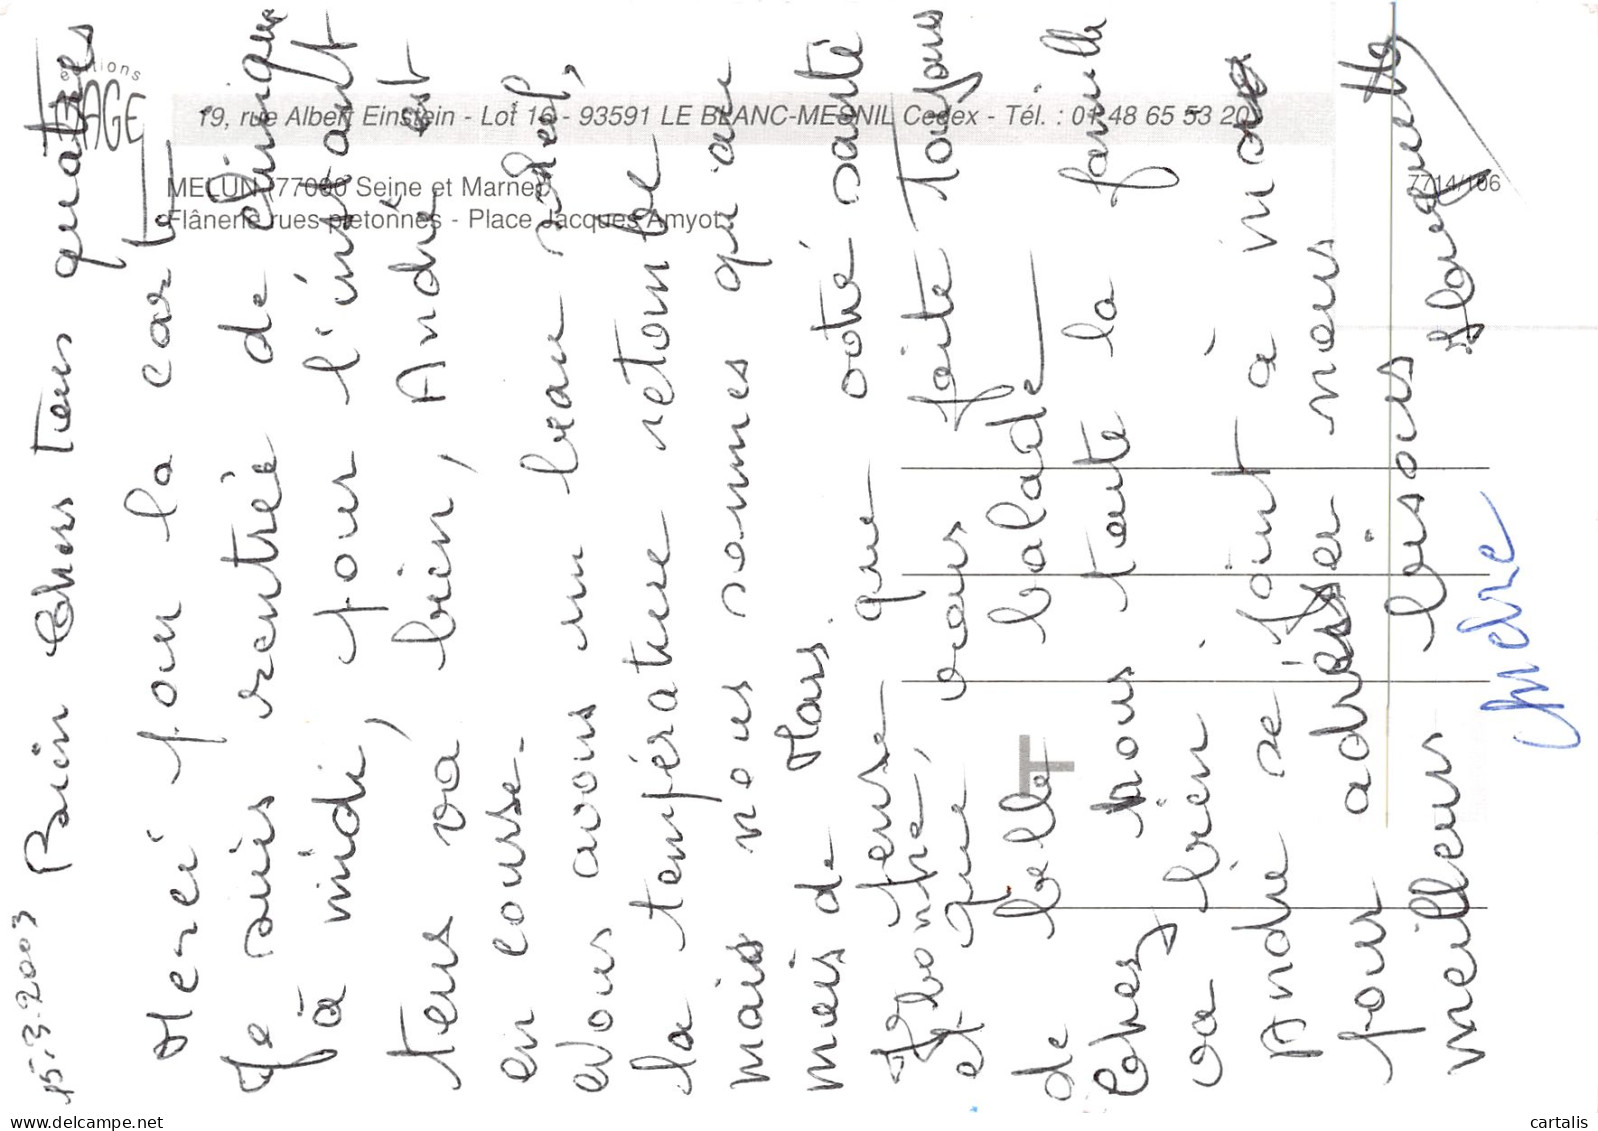 éditions
GAGE
19, rue Albert Einstein - Lot 16 - 93591 LE BLANC-MESNIL Cedex - Tél. : 01 48 65 53 20
MELUN (77000 Seine et Marne)
Flânerie rues piétonnes - Place Jacques Amyot
7714/106
T
15.3.2003 Bien Chers tous quatres
Merci pour la carte
Je suis rentrée de clinique
à midi, pour l'instant
tous va bien, André est
en course.
Nous avons un beau soleil,
la température retombe
mais nous sommes qu'au
mois de Mars.
J'espère que votre santé
bonne,
et que vous faite toujours
de belle balade
Chez nous toute la famille
va bien
André se joint à moi
pour adresser nos
meilleurs bisous
Huguette
André
cartalis